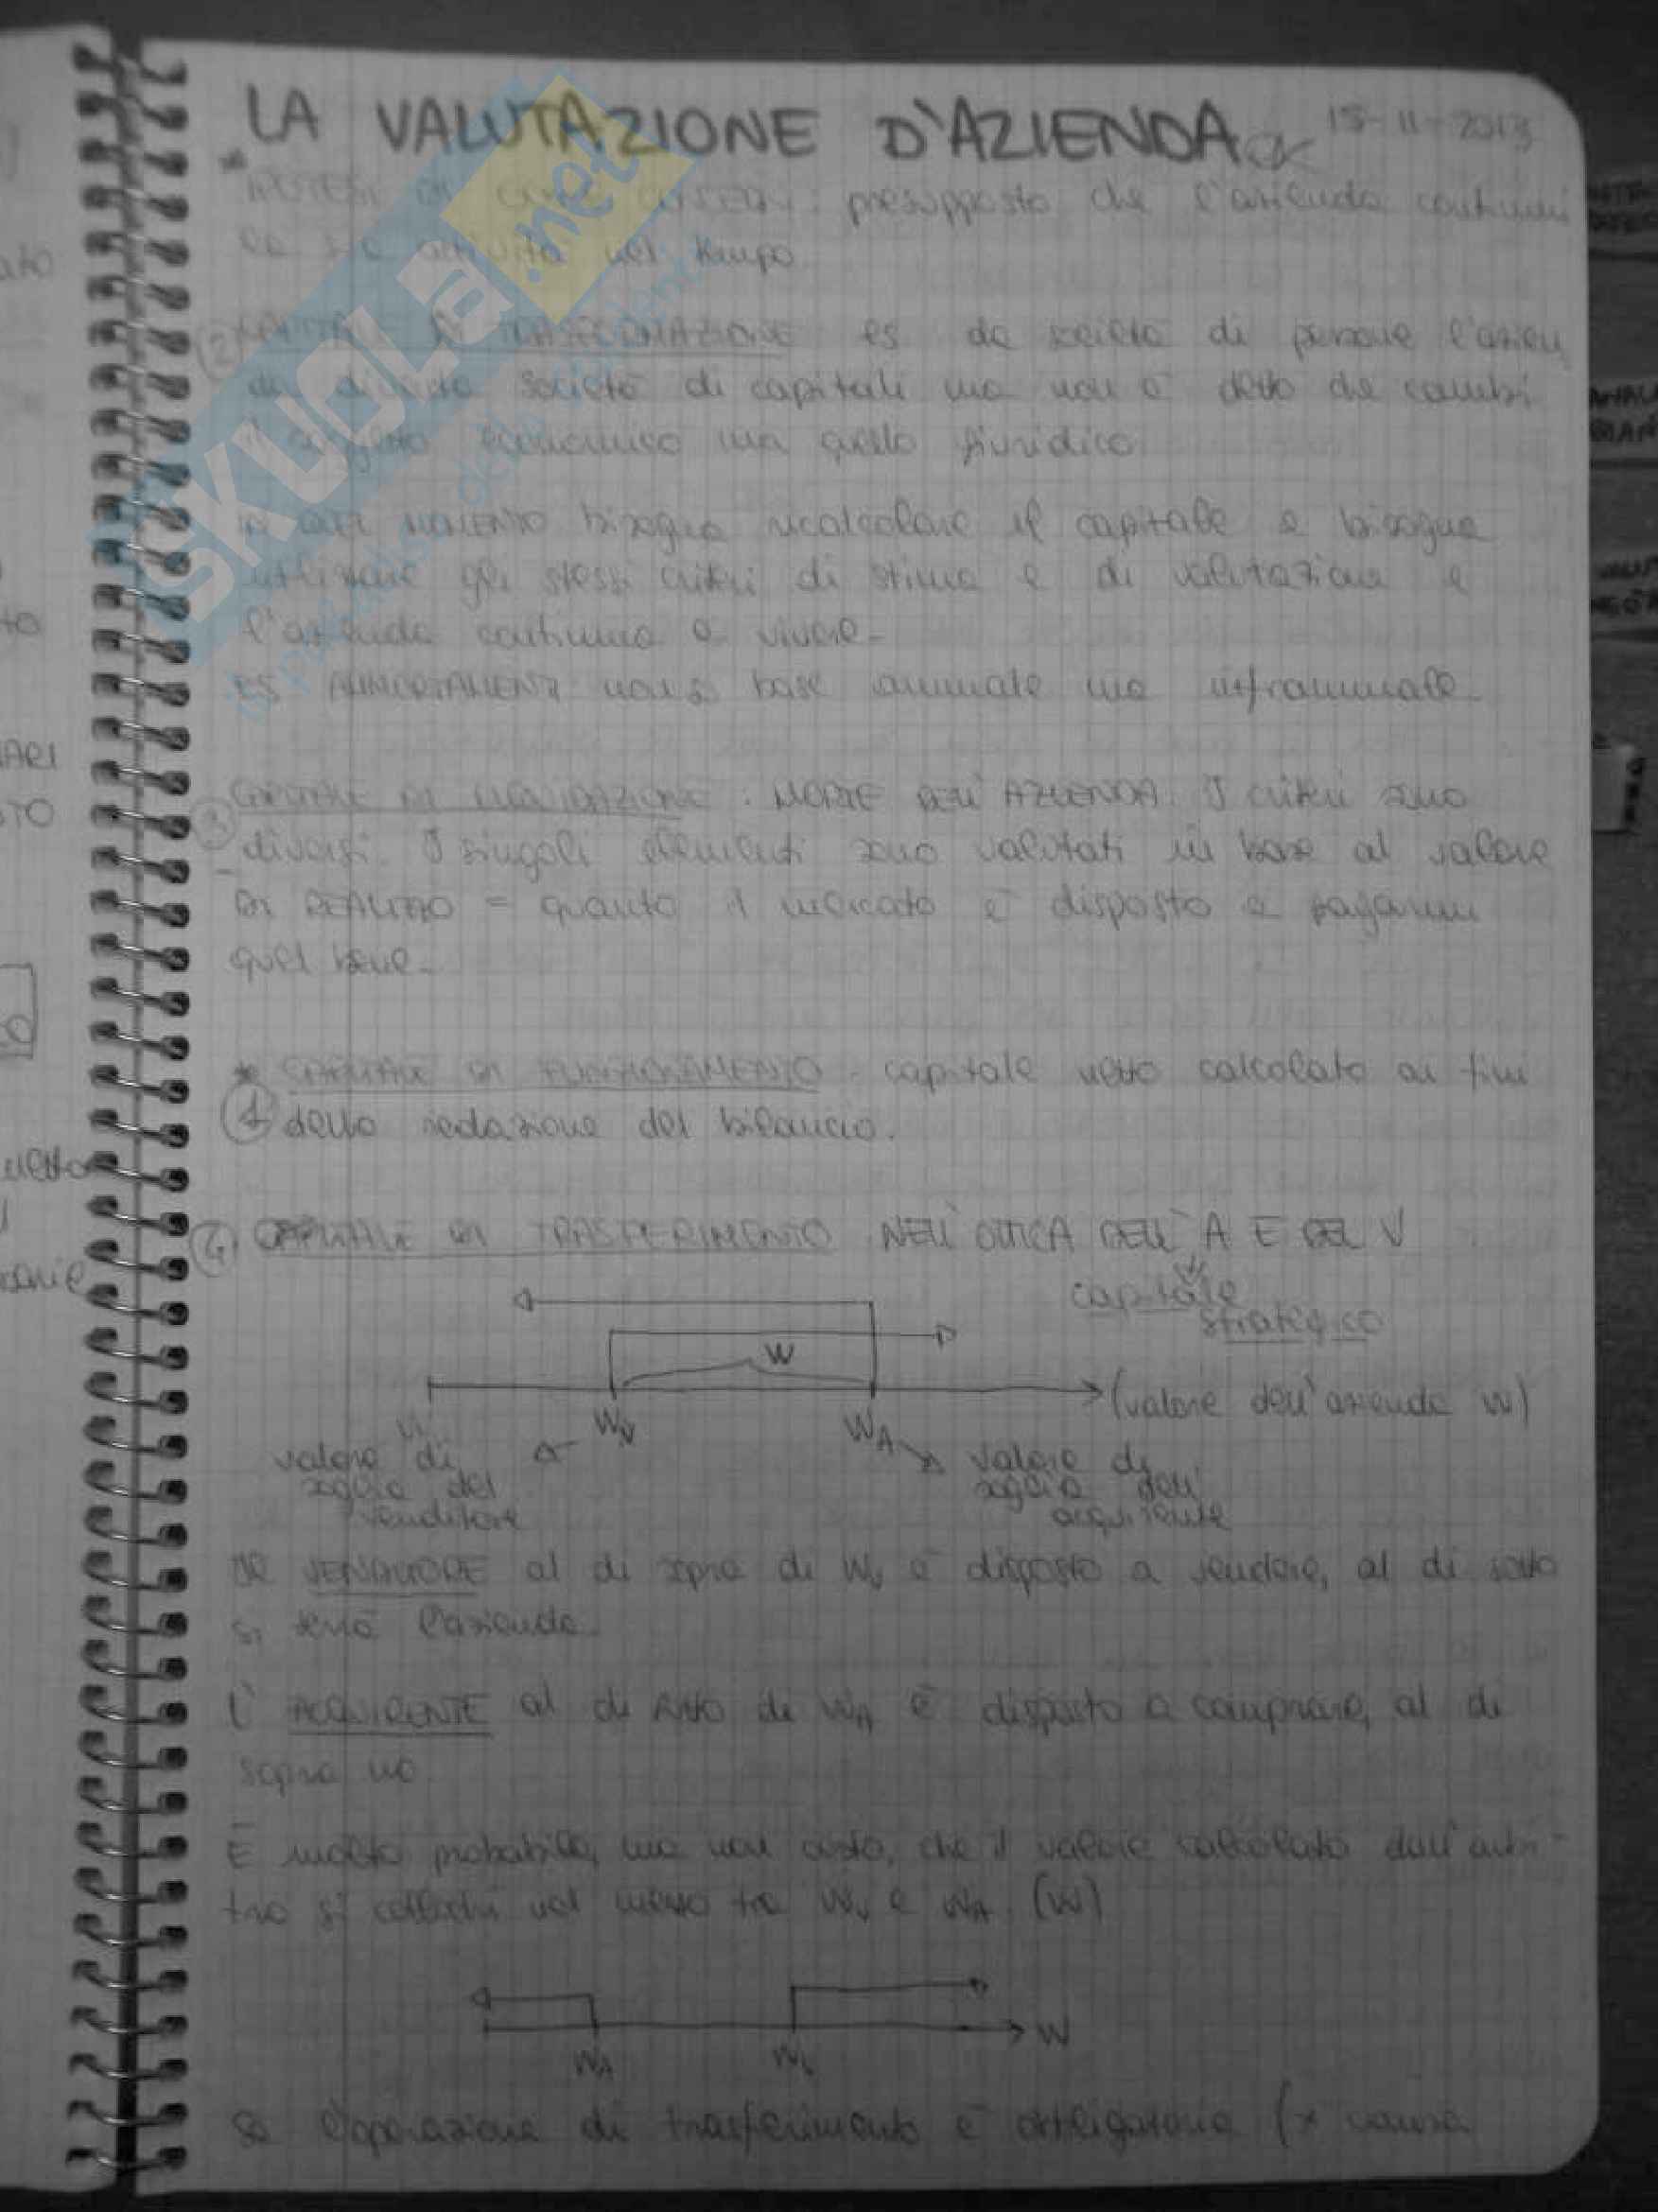 LA VALUTAZIONE D'AZIENDA 15-11-2013
IPOTESI DI GOING CONCERN: presupposto che l'azienda continui
la sua attività nel tempo
(2) CAPITALE DI TRASFORMAZIONE es da società di persone l'azien
da diventa società di capitali ma non è detto che cambi
il soggetto economico ma quello giuridico
IN QUEL MOMENTO bisogna ricalcolare il capitale e bisogna
utilizzare gli stessi criteri di stima e di valutazione e
l'azienda continua a vivere-
es AMMORTAMENTI non su base annuale ma infrannuale-
(3) CAPITALE DI LIQUIDAZIONE: MORTE DELL'AZIENDA. I criteri sono
diversi. I singoli elementi sono valutati in base al valore
DI REALIZZO = quanto il mercato è disposto a pagarmi
quel bene-
* CAPITALE DI FUNZIONAMENTO - capitale netto calcolato ai fini
(1) della redazione del bilancio.
(4) CAPITALE DI TRASFERIMENTO NELL'OTTICA DELL'A E DEL V
capitale
strategico
W
(valore dell'azienda W)
Wv WA
valore di
soglia del
venditore
valore di
soglia dell'
acquirente
Il VENDITORE al di sopra di Wv è disposto a vendere, al di sotto
si tiene l'azienda-
L'ACQUIRENTE al di sotto di WA è disposto a comprare, al di
sopra no
È molto probabile, ma non certo, che il valore calcolato dall'arbi-
tro si collochi nel mezzo tra Wv e WA (W)
W
WA Wv
Se l'operazione di trasferimento è obbligatoria (x causa
SKUOLA.net